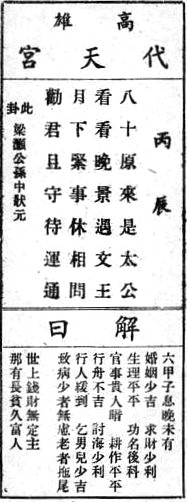 高雄
代天宮
丙辰
八十原來是太公
看看晚景遇文王
月下緊事休相問
勸君且守待運通
此卦
梁灝公孫中狀元
解曰
六甲子息晚未有
婚姻少吉 求財少利
生理平平 功名後科
官事貴人暗 耕作平平
行舟不吉 討海少利
行人緩到 乞男兒少吉
致病少者無慮老者拖尾
世上錢財無定主
那有長貧久富人